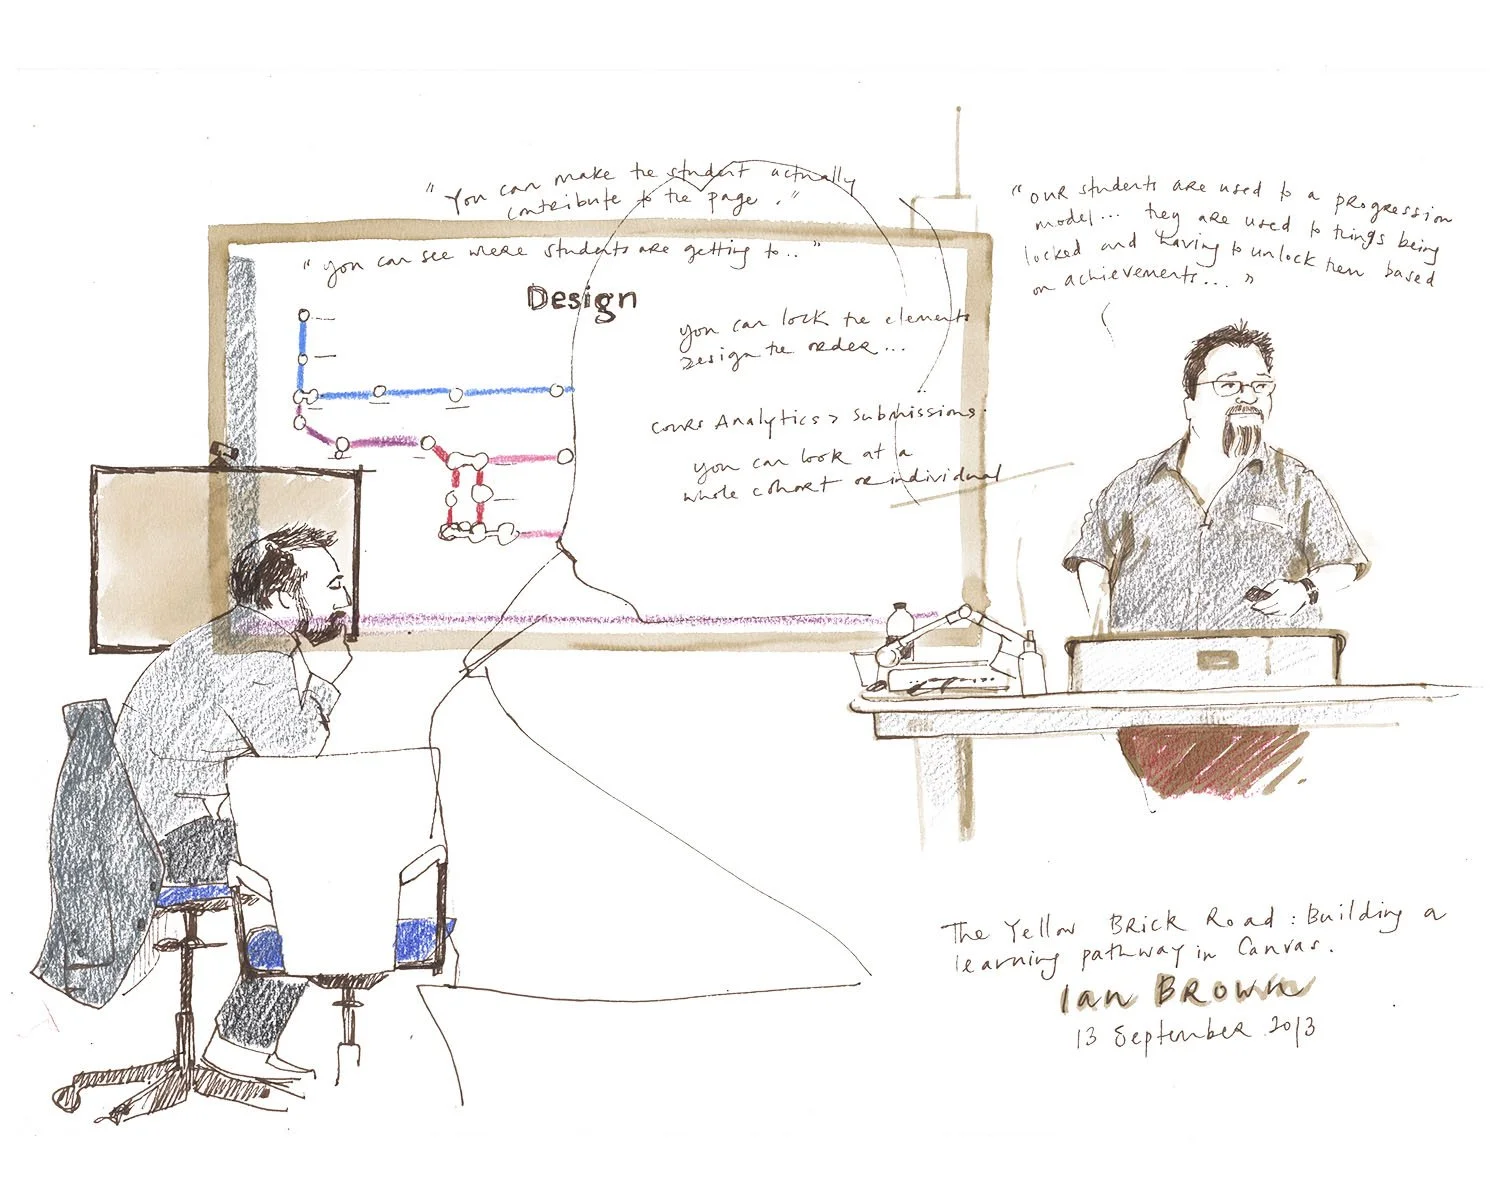 "You can make the student actually
contribute to the page."
"you can see where students are getting to.."
Design
you can lock the elements
Design the order...
course Analytics > submissions.
you can look at a
whole cohort or individual
"our students are used to a progression
model... they are used to things being
locked and having to unlock them based
on achievements..."
The Yellow Brick Road: Building a
learning pathway in Canvas.
Ian Brown
13 September 2013